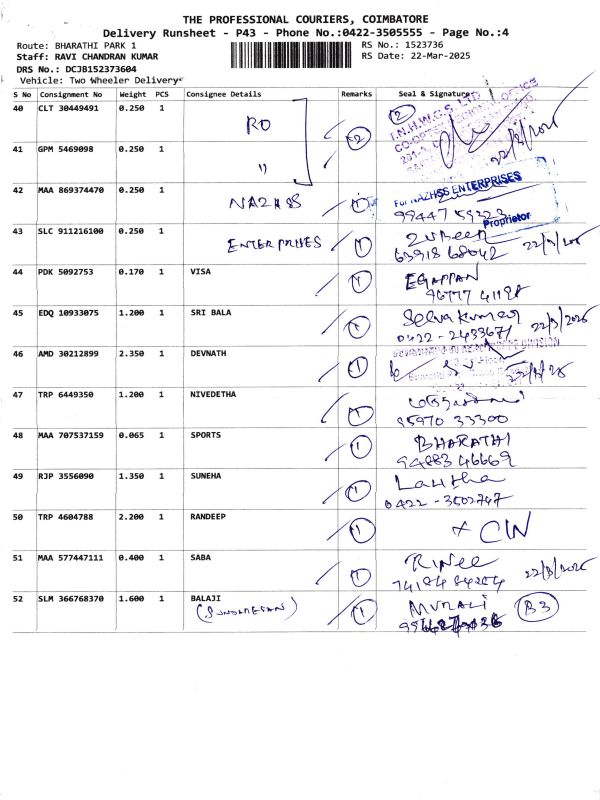 THE PROFESSIONAL COURIERS, COIMBATORE
Delivery Runsheet - P43 - Phone No.:0422-3505555 - Page No.:4
Route: BHARATHI PARK 1
RS No.: 1523736
Staff: RAVI CHANDRAN KUMAR
RS Date: 22-Mar-2025
DRS No.: DCJB152373604
Vehicle: Two Wheeler Delivery
S No Consignment No Weight PCS Consignee Details Remarks Seal & Signature
40 CLT 30449491 0.250 1 RO 2 2
41 GPM 5469098 0.250 1 "
42 MAA 869374470 0.250 1 NAZHSS 1 For NAZHSS ENTERPRISES
Proprietor
43 SLC 911216100 0.250 1 ENTERPRISES 1
44 PDK 5092753 0.170 1 VISA 1 EGAPPAN
96777 41198
45 EDQ 10933075 1.200 1 SRI BALA 1 Selvakumar
0422-2433671
46 AMD 30212899 2.350 1 DEVNATH 1
47 TRP 6449350 1.200 1 NIVEDETHA 1
95970 33300
48 MAA 707537159 0.065 1 SPORTS 1 BHARATHI
94883 46669
49 RJP 3556090 1.350 1 SUNEHA 1 Lalitha
0422-3502747
50 TRP 4604788 2.200 1 RANDEEP 1 + CW
51 MAA 577447111 0.400 1 SABA 1
52 SLM 366768370 1.600 1 BALAJI 1 MURALI B3
(SUNDARESAN)